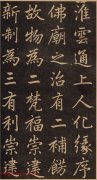 淮雲通上人化緣序
佛廟之治有二補弊
故物為二梵福崇建
新制為三有利崇建